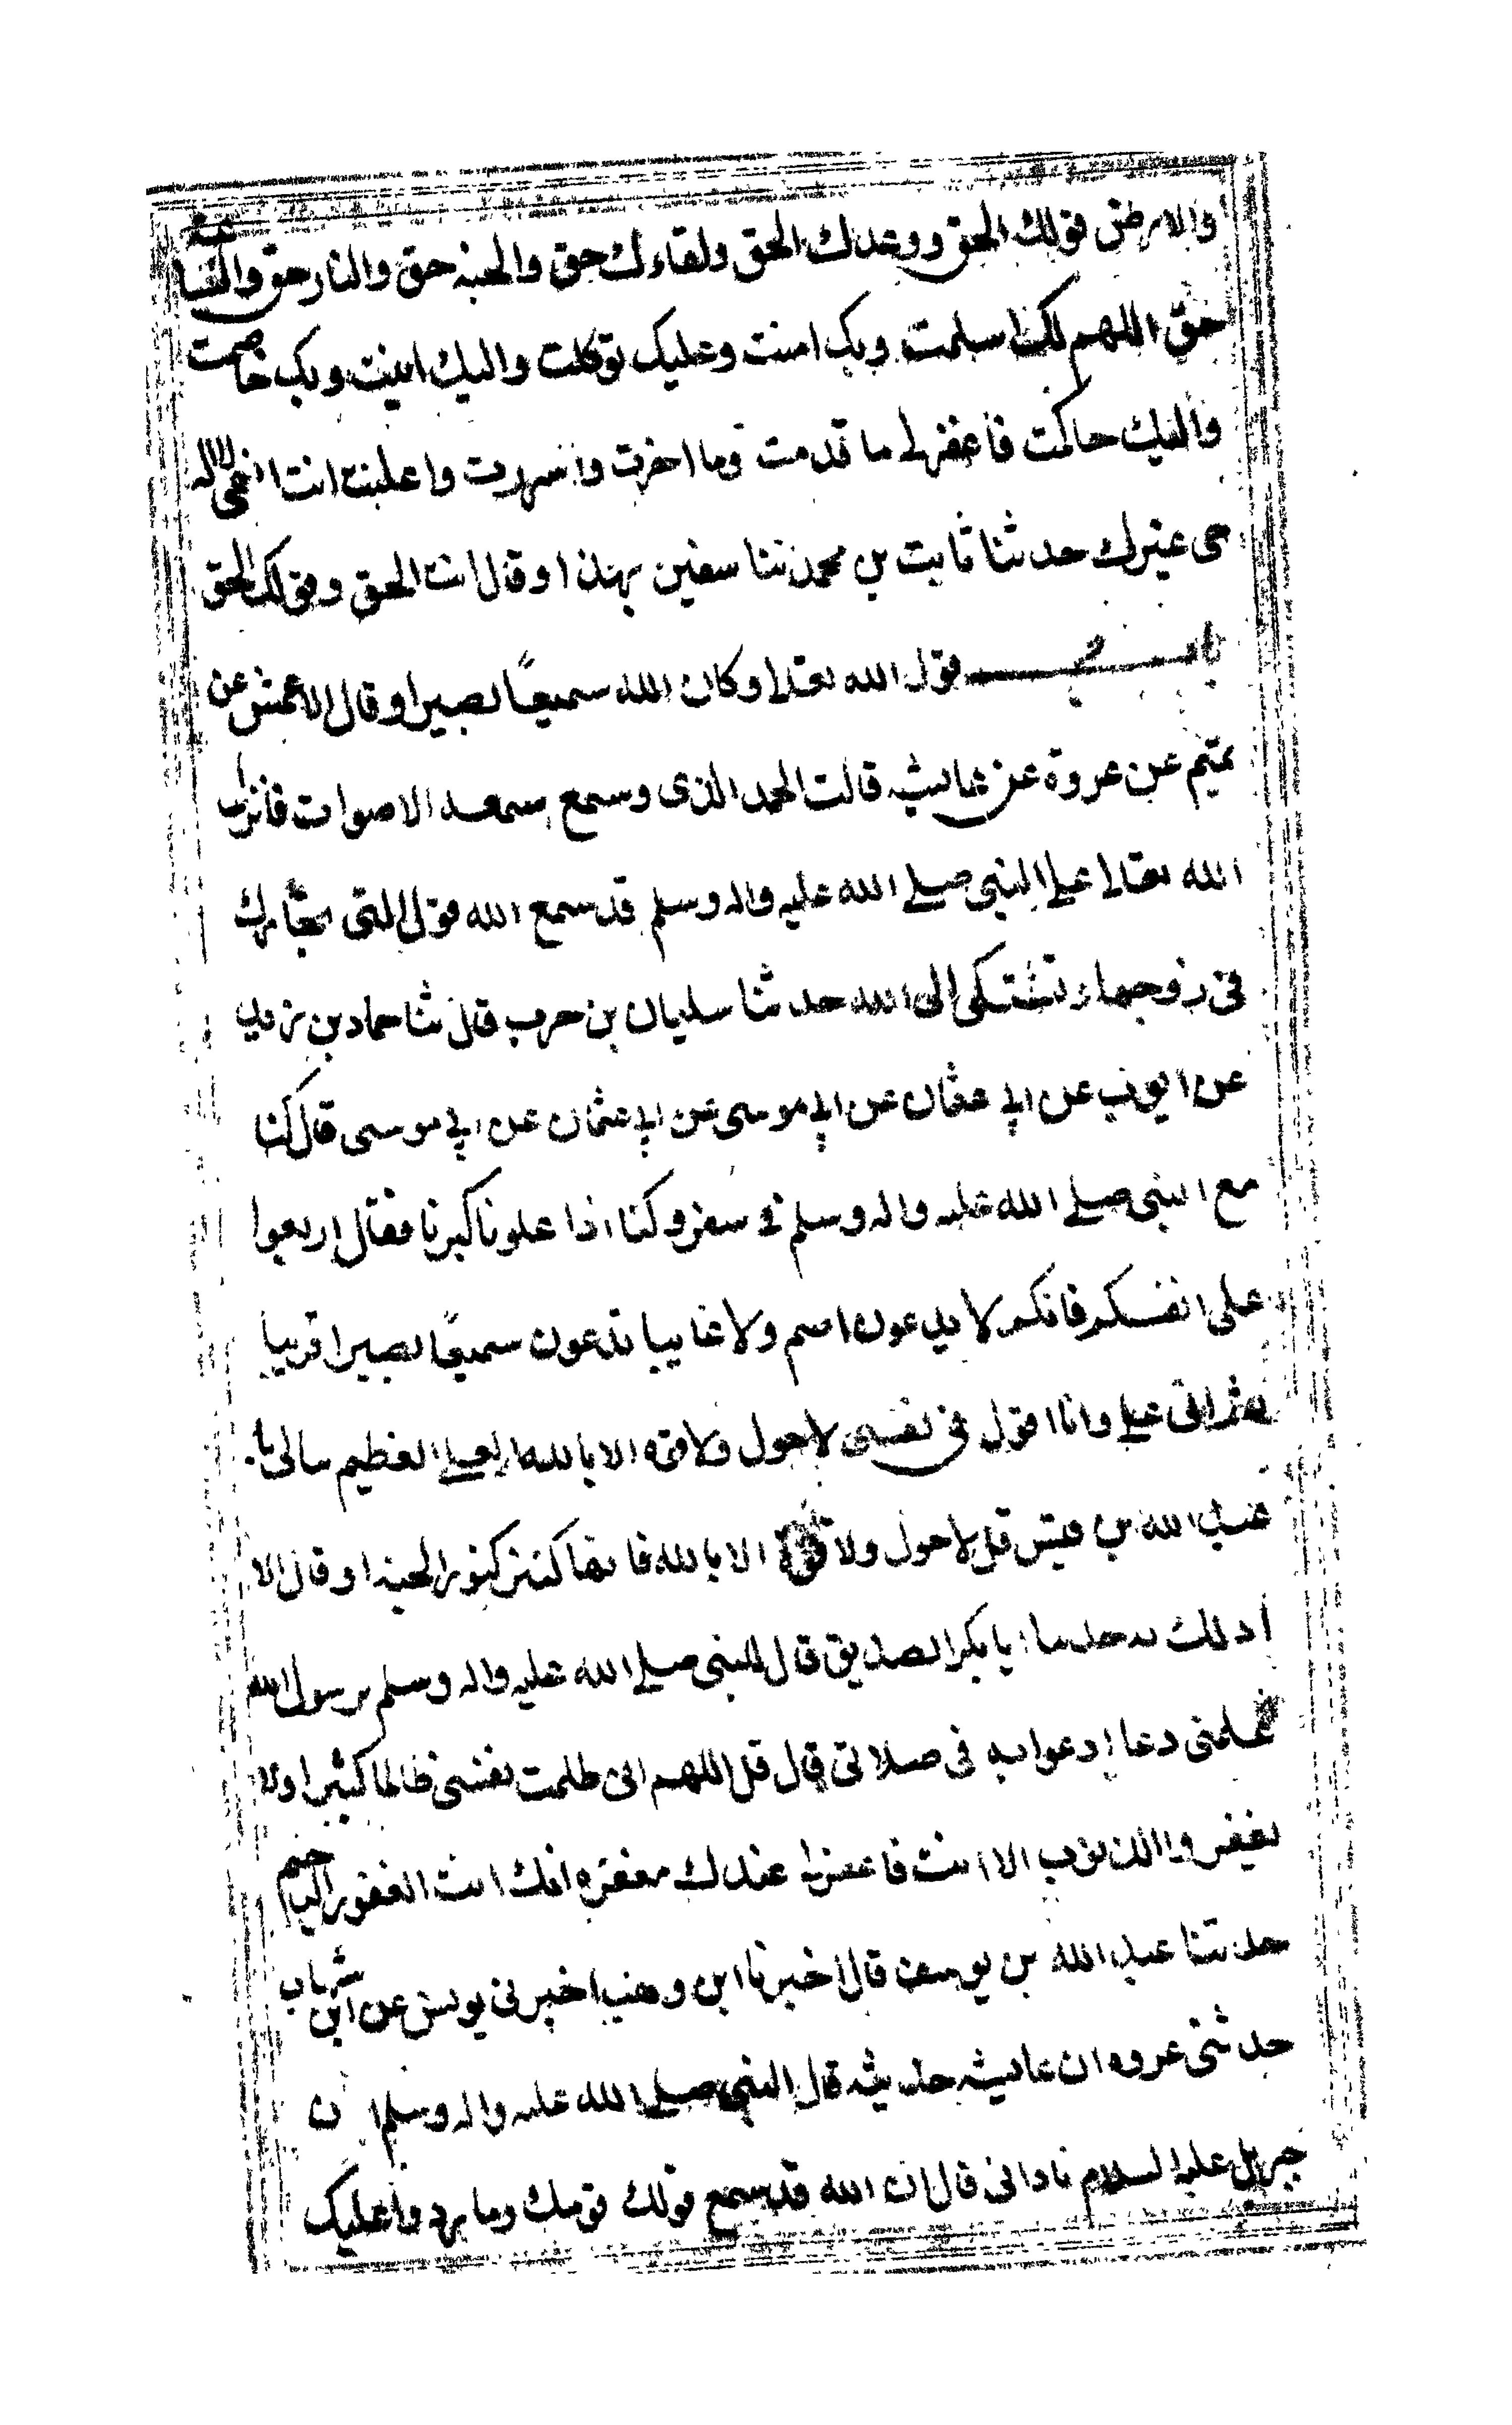 والارض قولك الحق ووعدك الحق ولقاءك حق والجنة حق والنار حق والساعة
حق اللهم لك اسلمت وبك امنت وعليك توكلت واليك انبت وبك خاصمت
واليك حاكمت فاغفرلى ما قدمت وما اخرت واسررت واعلنت انت الهى لا اله
لى غيرك حدثنا ثابت بن محمد ثنا سفين بهذا وقال انت الحق وقولك الحق
باب قول الله تعالى وكان الله سميعًا بصيرا وقال الاعمش عن
تميم عن عروة عن عايشه قالت الحمد الذى وسع سمعه الاصوات فانزل
الله تعالى على النبى صلى الله عليه واله وسلم قد سمع الله قول التى تجادلك
فى زوجها وتشتكى الى الله حدثنا سليمان بن حرب قال ثنا حماد بن زيد
عن ايوب عن ابى عثمان عن ابى موسى عن ابى عثمان عن ابى موسى قال كنا
مع النبى صلى الله عليه واله وسلم فى سفر وكنا اذا علونا كبرنا فقال اربعوا
على انفسكم فانكم لا يدعون اصم ولا غايبا تدعون سميعًا بصيرا قريبا
ثم اتى على وانا اقول فى نفسى لاحول ولا قوه الا بالله العلى العظيم يا
عبد الله بن قيس قل لاحول ولا قوة الا بالله فانها كنز كنوز الجنه او قال الا
ادلك به ابا بكر الصديق قال للنبى صلى الله عليه واله وسلم يرسول الله
علمنى دعا ادعوا به فى صلاتى قال قل اللهم انى ظلمت نفسى ظلما كثيرا ولا
يغفر الذنوب الا انت فاغفرلى عندك مغفره انك انت الغفور الرحيم
حدثنا عبد الله بن يوسف قال اخبرنا ابن وهب اخبرنى يونس عن ابن شهاب
حدثنى عروه ان عايشه حدثه قال النبى صلى الله عليه واله وسلم ان
جبريل عليه السلام نادانى قال ان الله قد سمع قولك قومك وما يردوا عليك